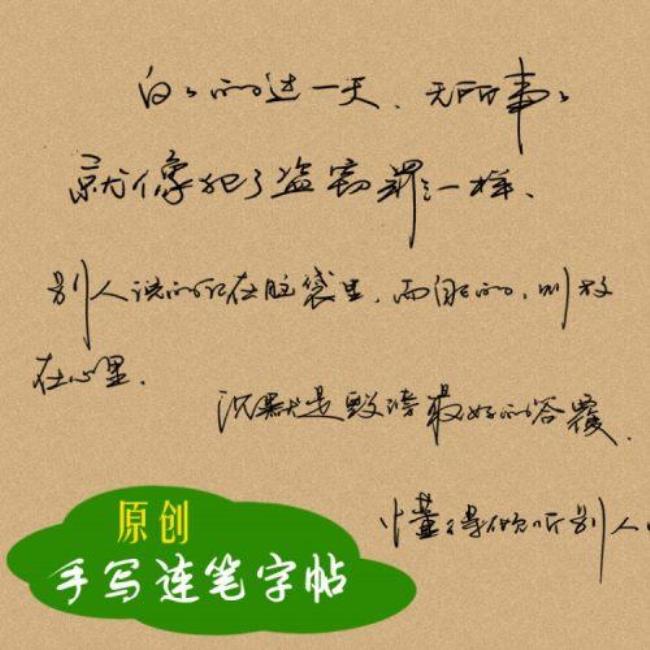 白白的过一天、无所事事
就像犯了盗窃罪一样、
别人说的记在脑袋里，而自己的，则放
在心里.
沉默是毁谤最好的答覆.
懂得倾听别人
原创
手写连笔字帖